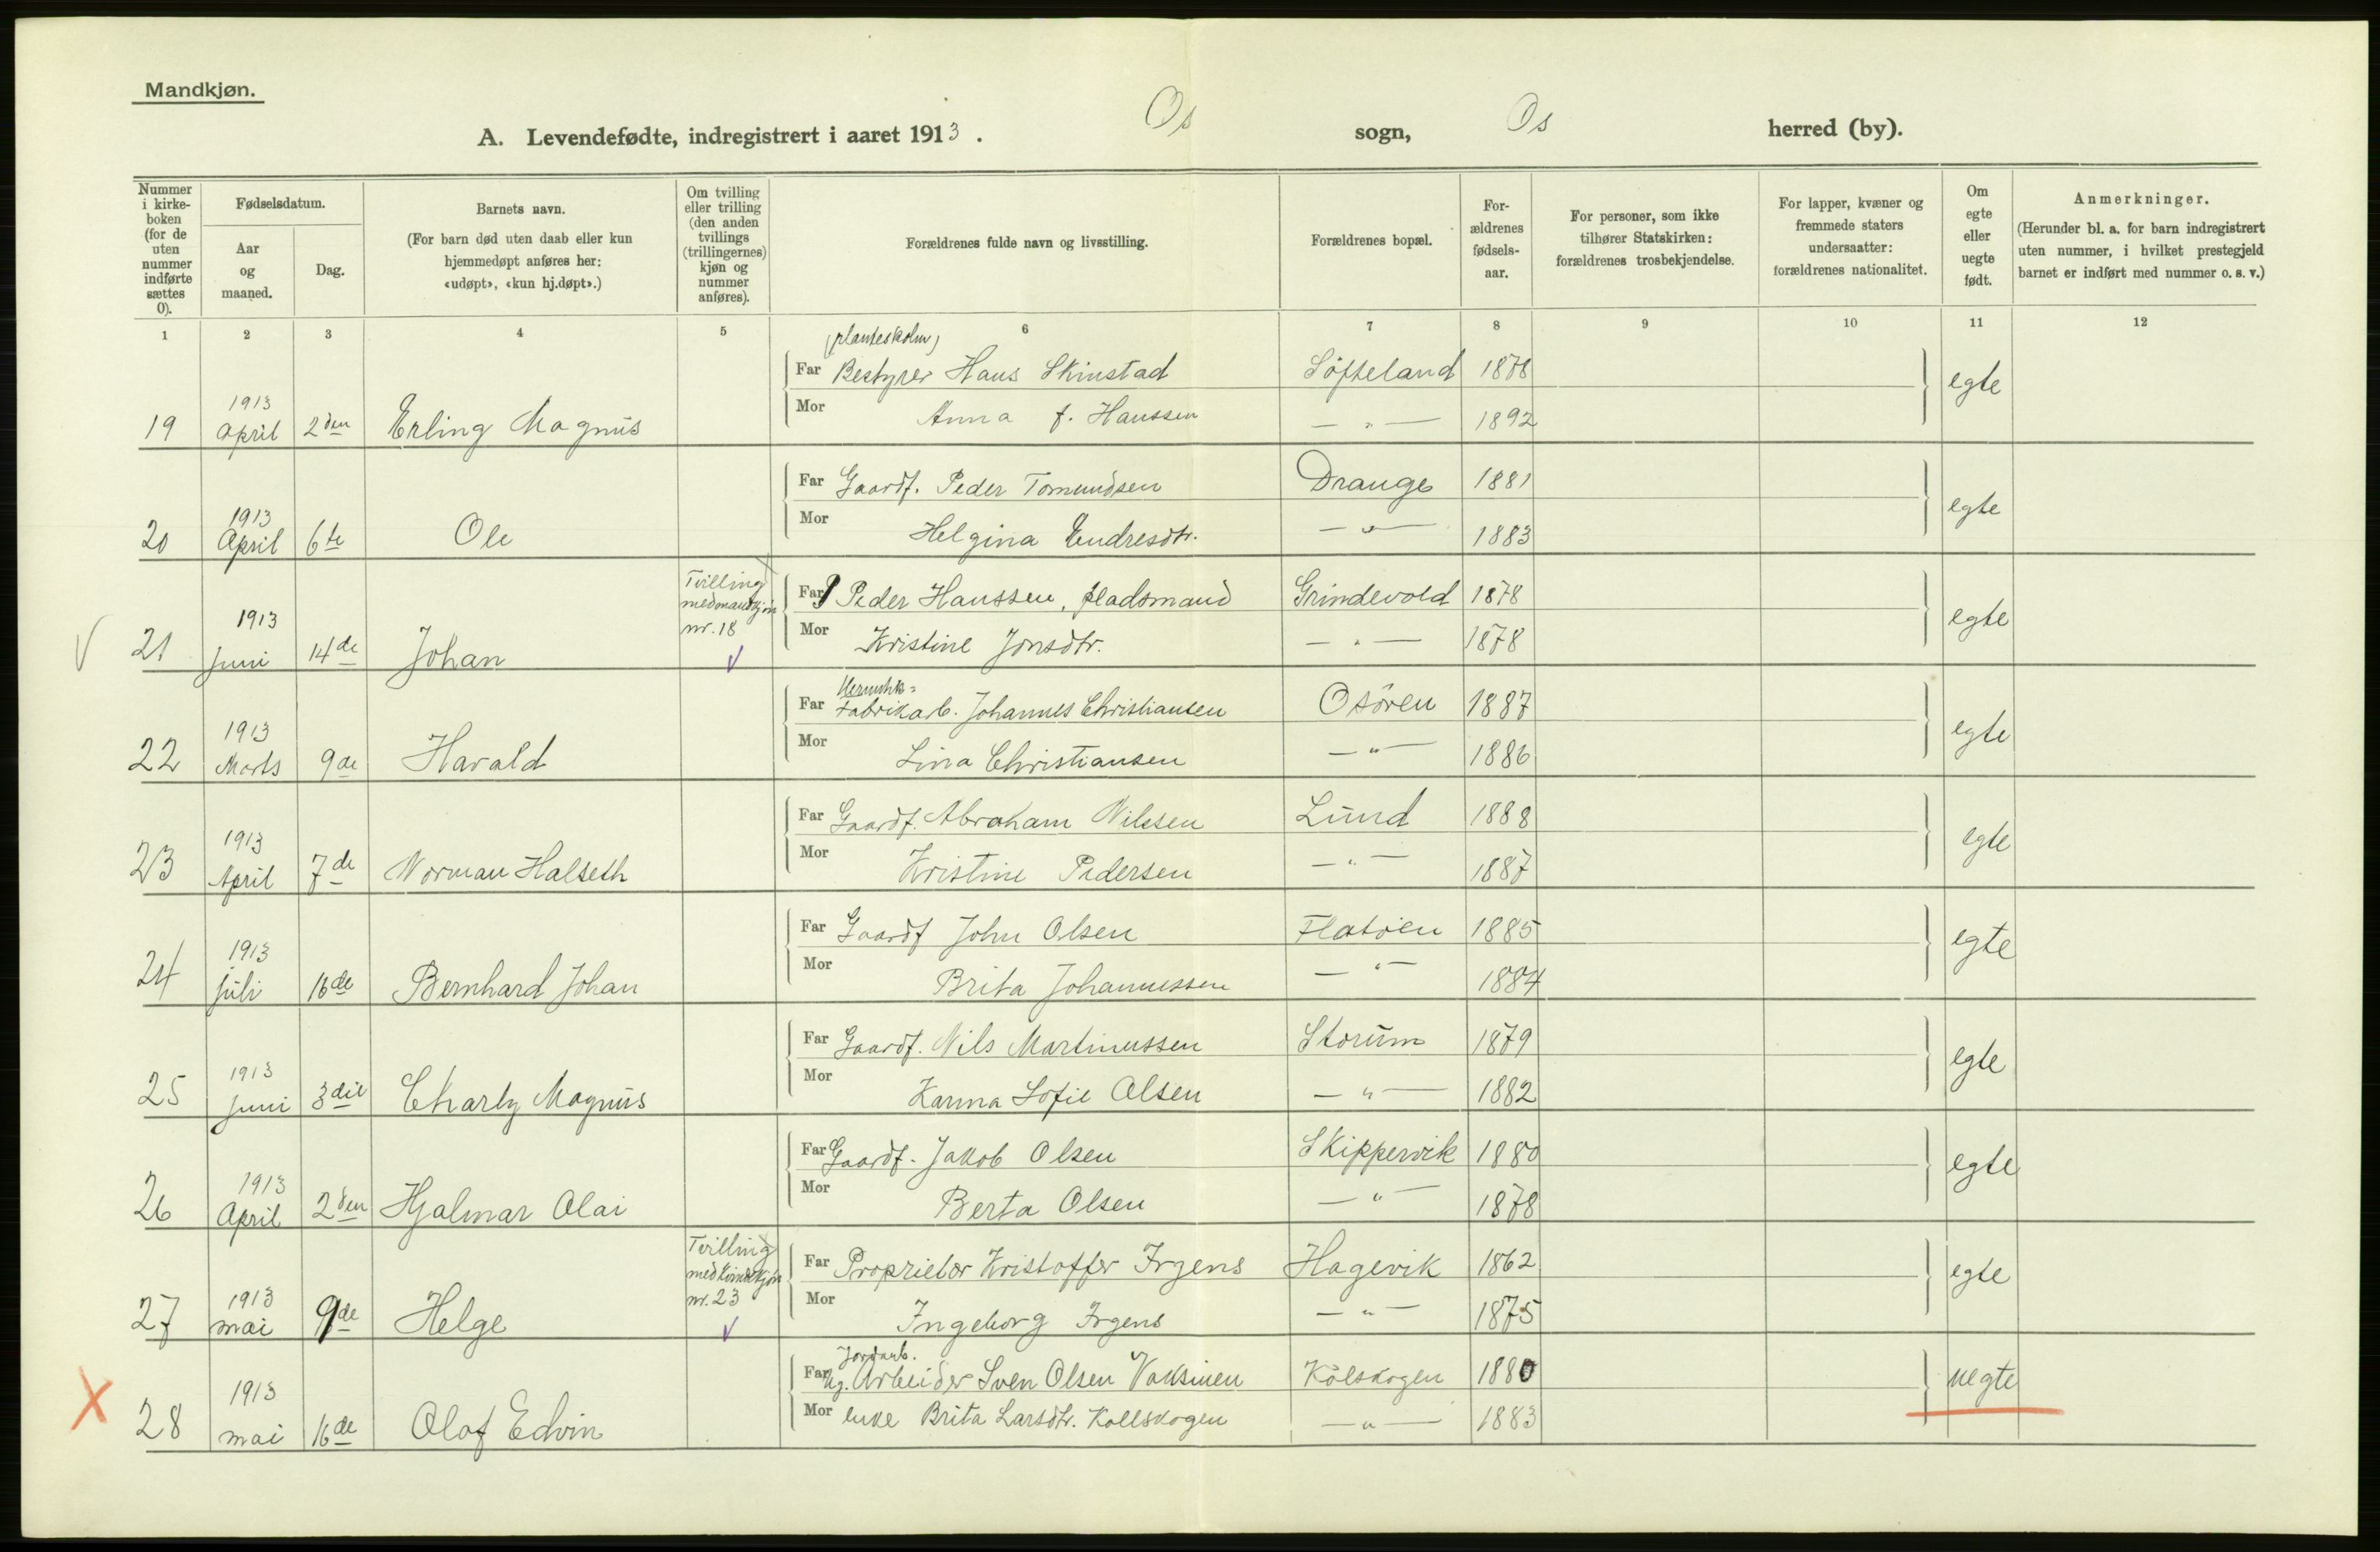 Mandkjøn.
A. Levendefødte, indregistrert i aaret 1913. Os sogn, Os herred (by).
Nummer i kirkeboken (for de uten nummer indførte sættes 0).
Fødselsdatum.
Aar og maaned.
Dag.
Barnets navn.
(For barn død uten daab eller kun hjemmedøpt anføres her: «udøpt», «kun hj.døpt».)
Om tvilling eller trilling (den anden tvillings (trillingernes) kjøn og nummer anføres).
Forældrenes fulde navn og livsstilling.
Forældrenes bopæl.
Forældrenes fødselsaar.
For personer, som ikke tilhører Statskirken: forældrenes trosbekjendelse.
For lapper, kvæner og fremmede staters undersaatter: forældrenes nationalitet.
Om egte eller uegte født.
Anmerkninger.
(Herunder bl. a. for barn indregistrert uten nummer, i hvilket prestegjeld barnet er indført med nummer o. s. v.)
1 2 3 4 5 6 7 8 9 10 11 12
(planteskolen)
Far Bestyrer Hans Skinstad Søfteland 1878 egte
19 1913 April 2den Erling Magnus
Mor Anna f. Hanssen — „ — 1892
Far Gaardf. Peder Tomundsen Drange 1881 egte
20 1913 April 6te Ole
Mor Helgina Endresdtr. — „ — 1883
Tvilling med mandkjøn nr. 18
Far Peder Hanssen, pladsmand Grindevold 1878 egte
V 21 1913 Juni 14de Johan V
Mor Kristine Jonsdtr. — „ — 1878
Far Fabrikarb. Johannes Christiansen Osøren 1887 egte
22 1913 Marts 9de Harald
Mor Lina Christiansen — „ — 1886
Far Gaardf. Abraham Nilssen Lund 1888 egte
23 1913 April 7de Norman Halseth
Mor Kristine Pedersen — „ — 1887
Far Gaardf John Olsen Flatøen 1885 egte
24 1913 juli 16de Bernhard Johan
Mor Brita Johannessen — „ — 1884
Far Gaardf. Nils Martinussen Storum 1879 egte
25 1913 Juni 3die Charly Magnus
Mor Karina Sofie Olsen — „ — 1882
Far Gaardf. Jakob Olsen Skippervik 1880 egte
26 1913 April 2den Hjalmar Olai
Mor Berta Olsen — „ — 1878
Tvilling med kvindekjøn nr. 23
Far Proprietær Kristoffer Irgens Hagevik 1862 egte
27 1913 mai 9de Helge V
Mor Ingeborg Irgens — „ — 1875
Jordarb.
Far Ug. Arbeider Sven Olsen Vaksinen Kolskogen 1880 uegte
X 28 1913 mai 16de Olaf Edvin
Mor enke Brita Larsdtr. Kollskogen — „ — 1883